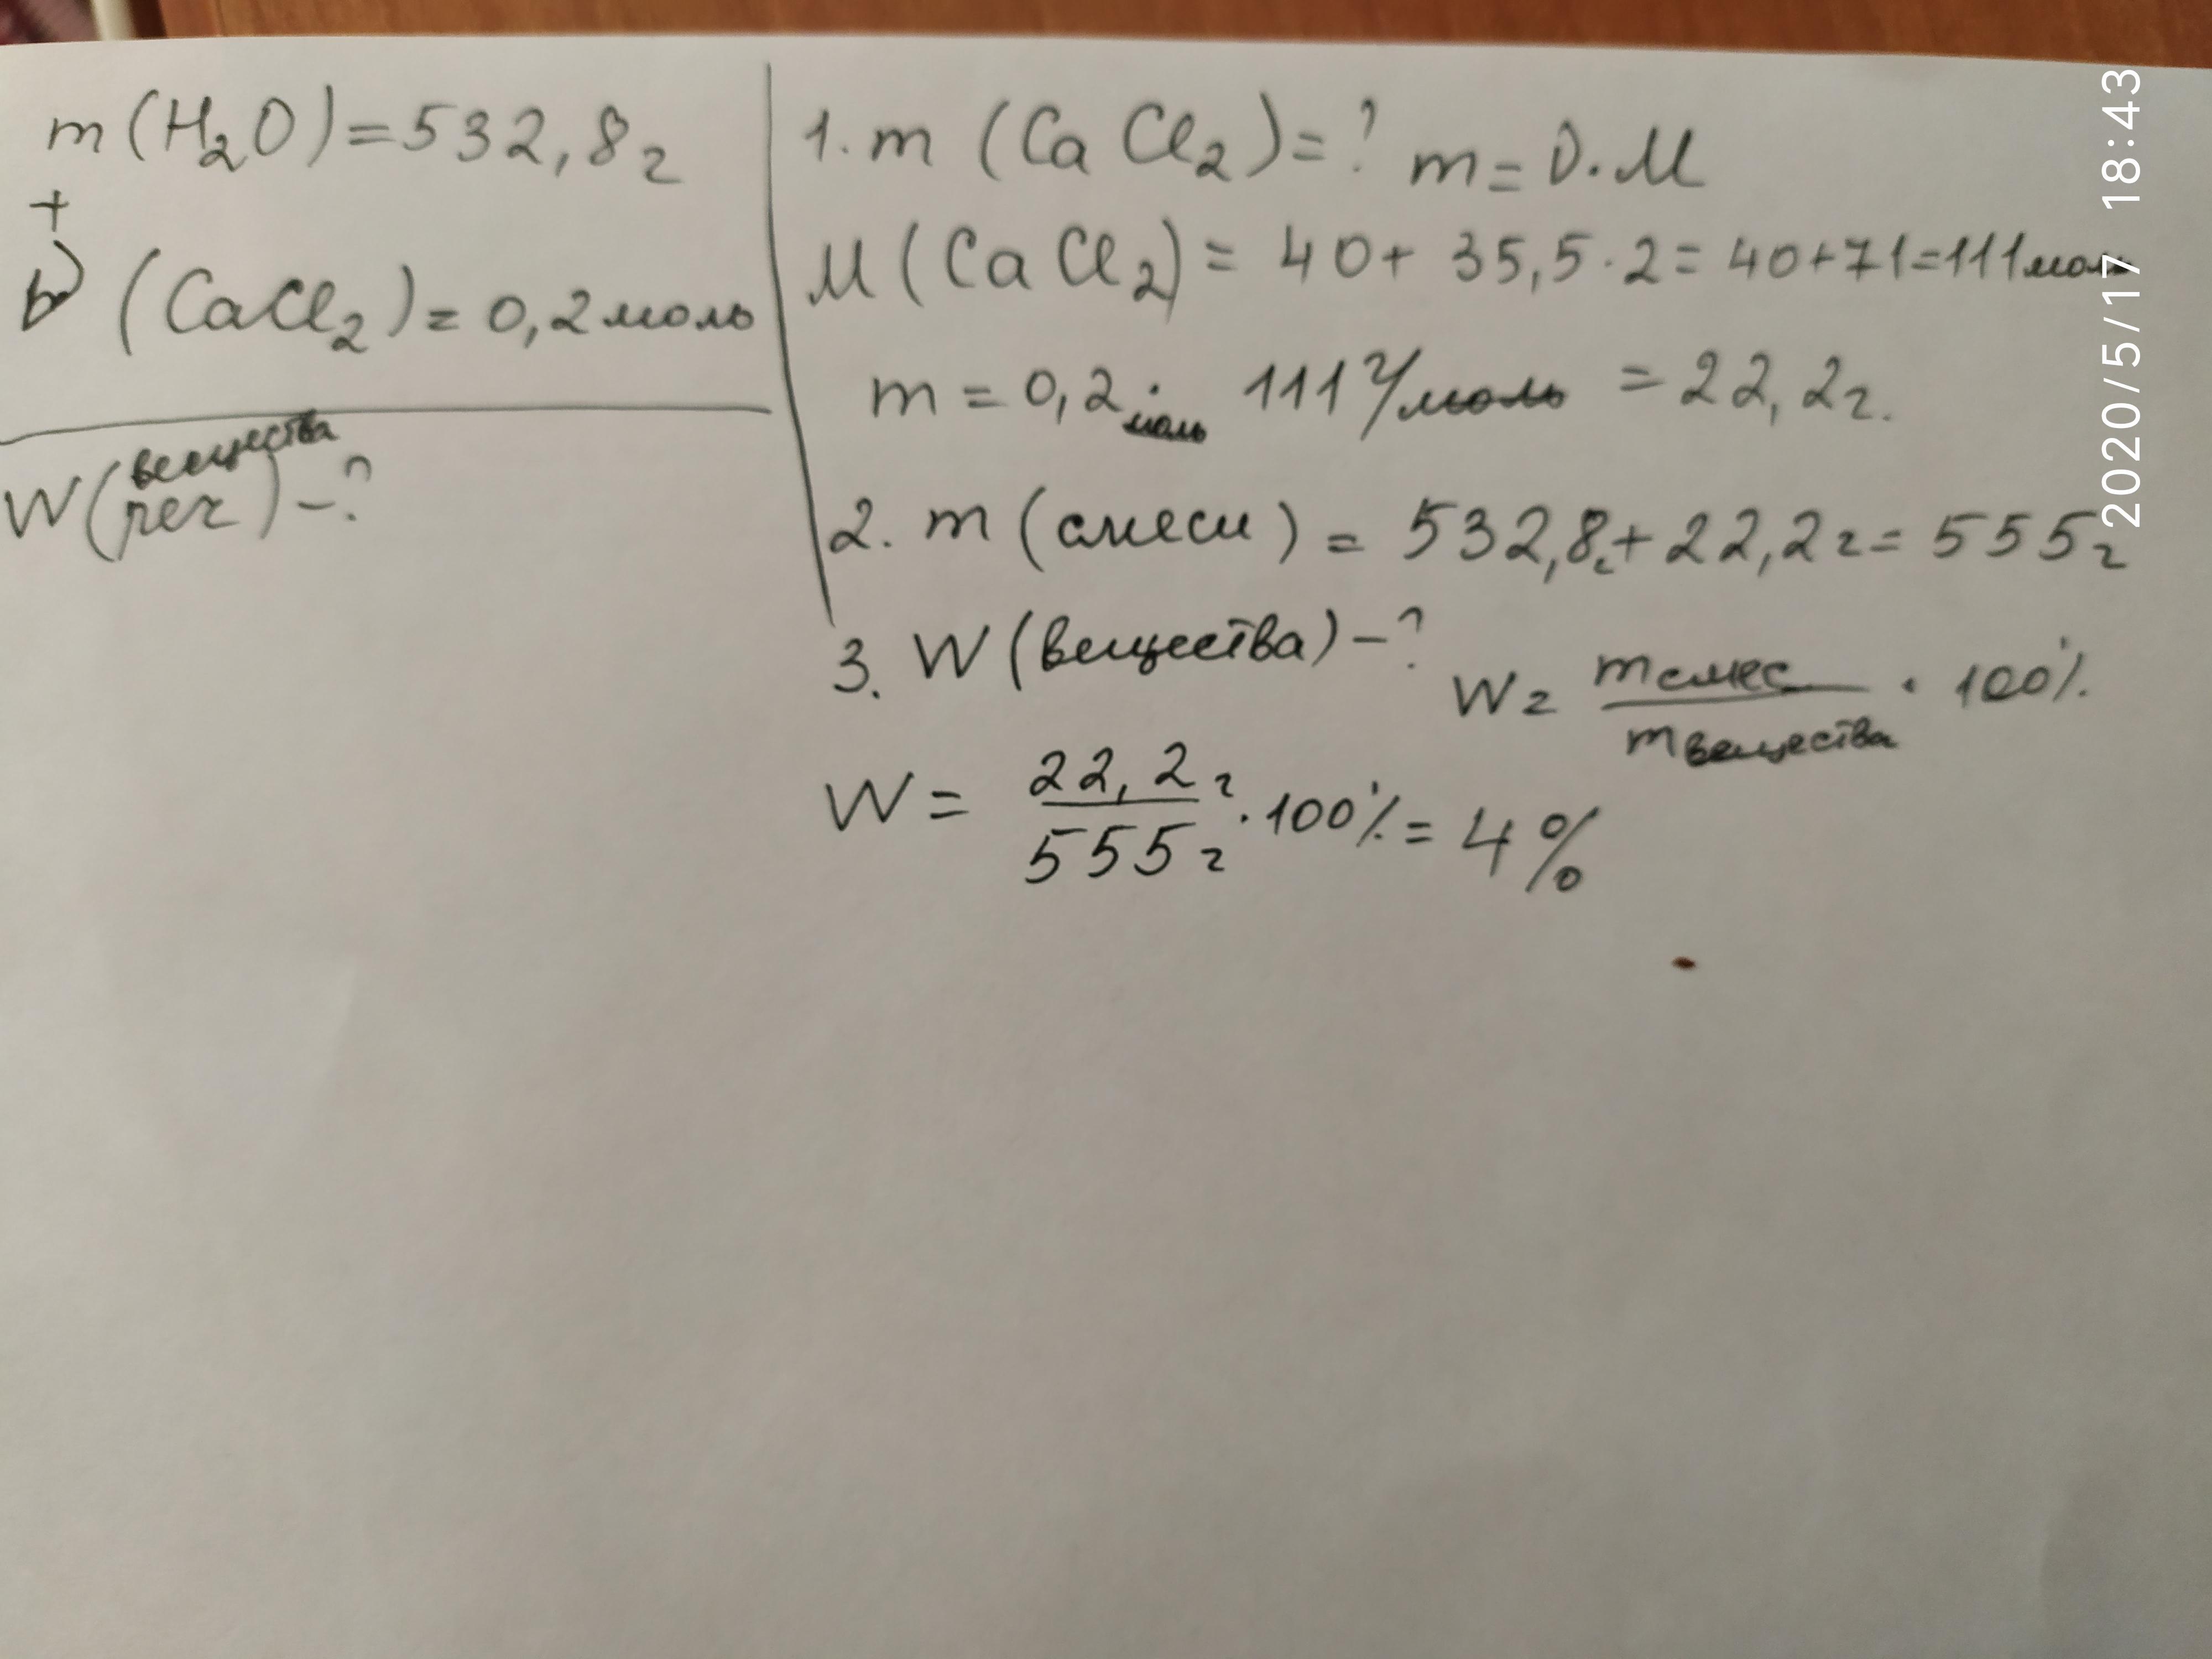 m(H₂O)=532,8г
+
(CaCl₂)=0,2моль
вещества
W( )-?
1. m (CaCl₂)=? m=ν·M
M(CaCl₂)= 40+ 35,5·2= 40+71=111моль
m = 0,2моль · 111г/моль = 22,2г.
2. m (смеси) = 532,8г+22,2г= 555г
3. W(вещества)-? W= mсмес / mвещества · 100%
W= 22,2г / 555г · 100%= 4%
2020/5/17 18:43